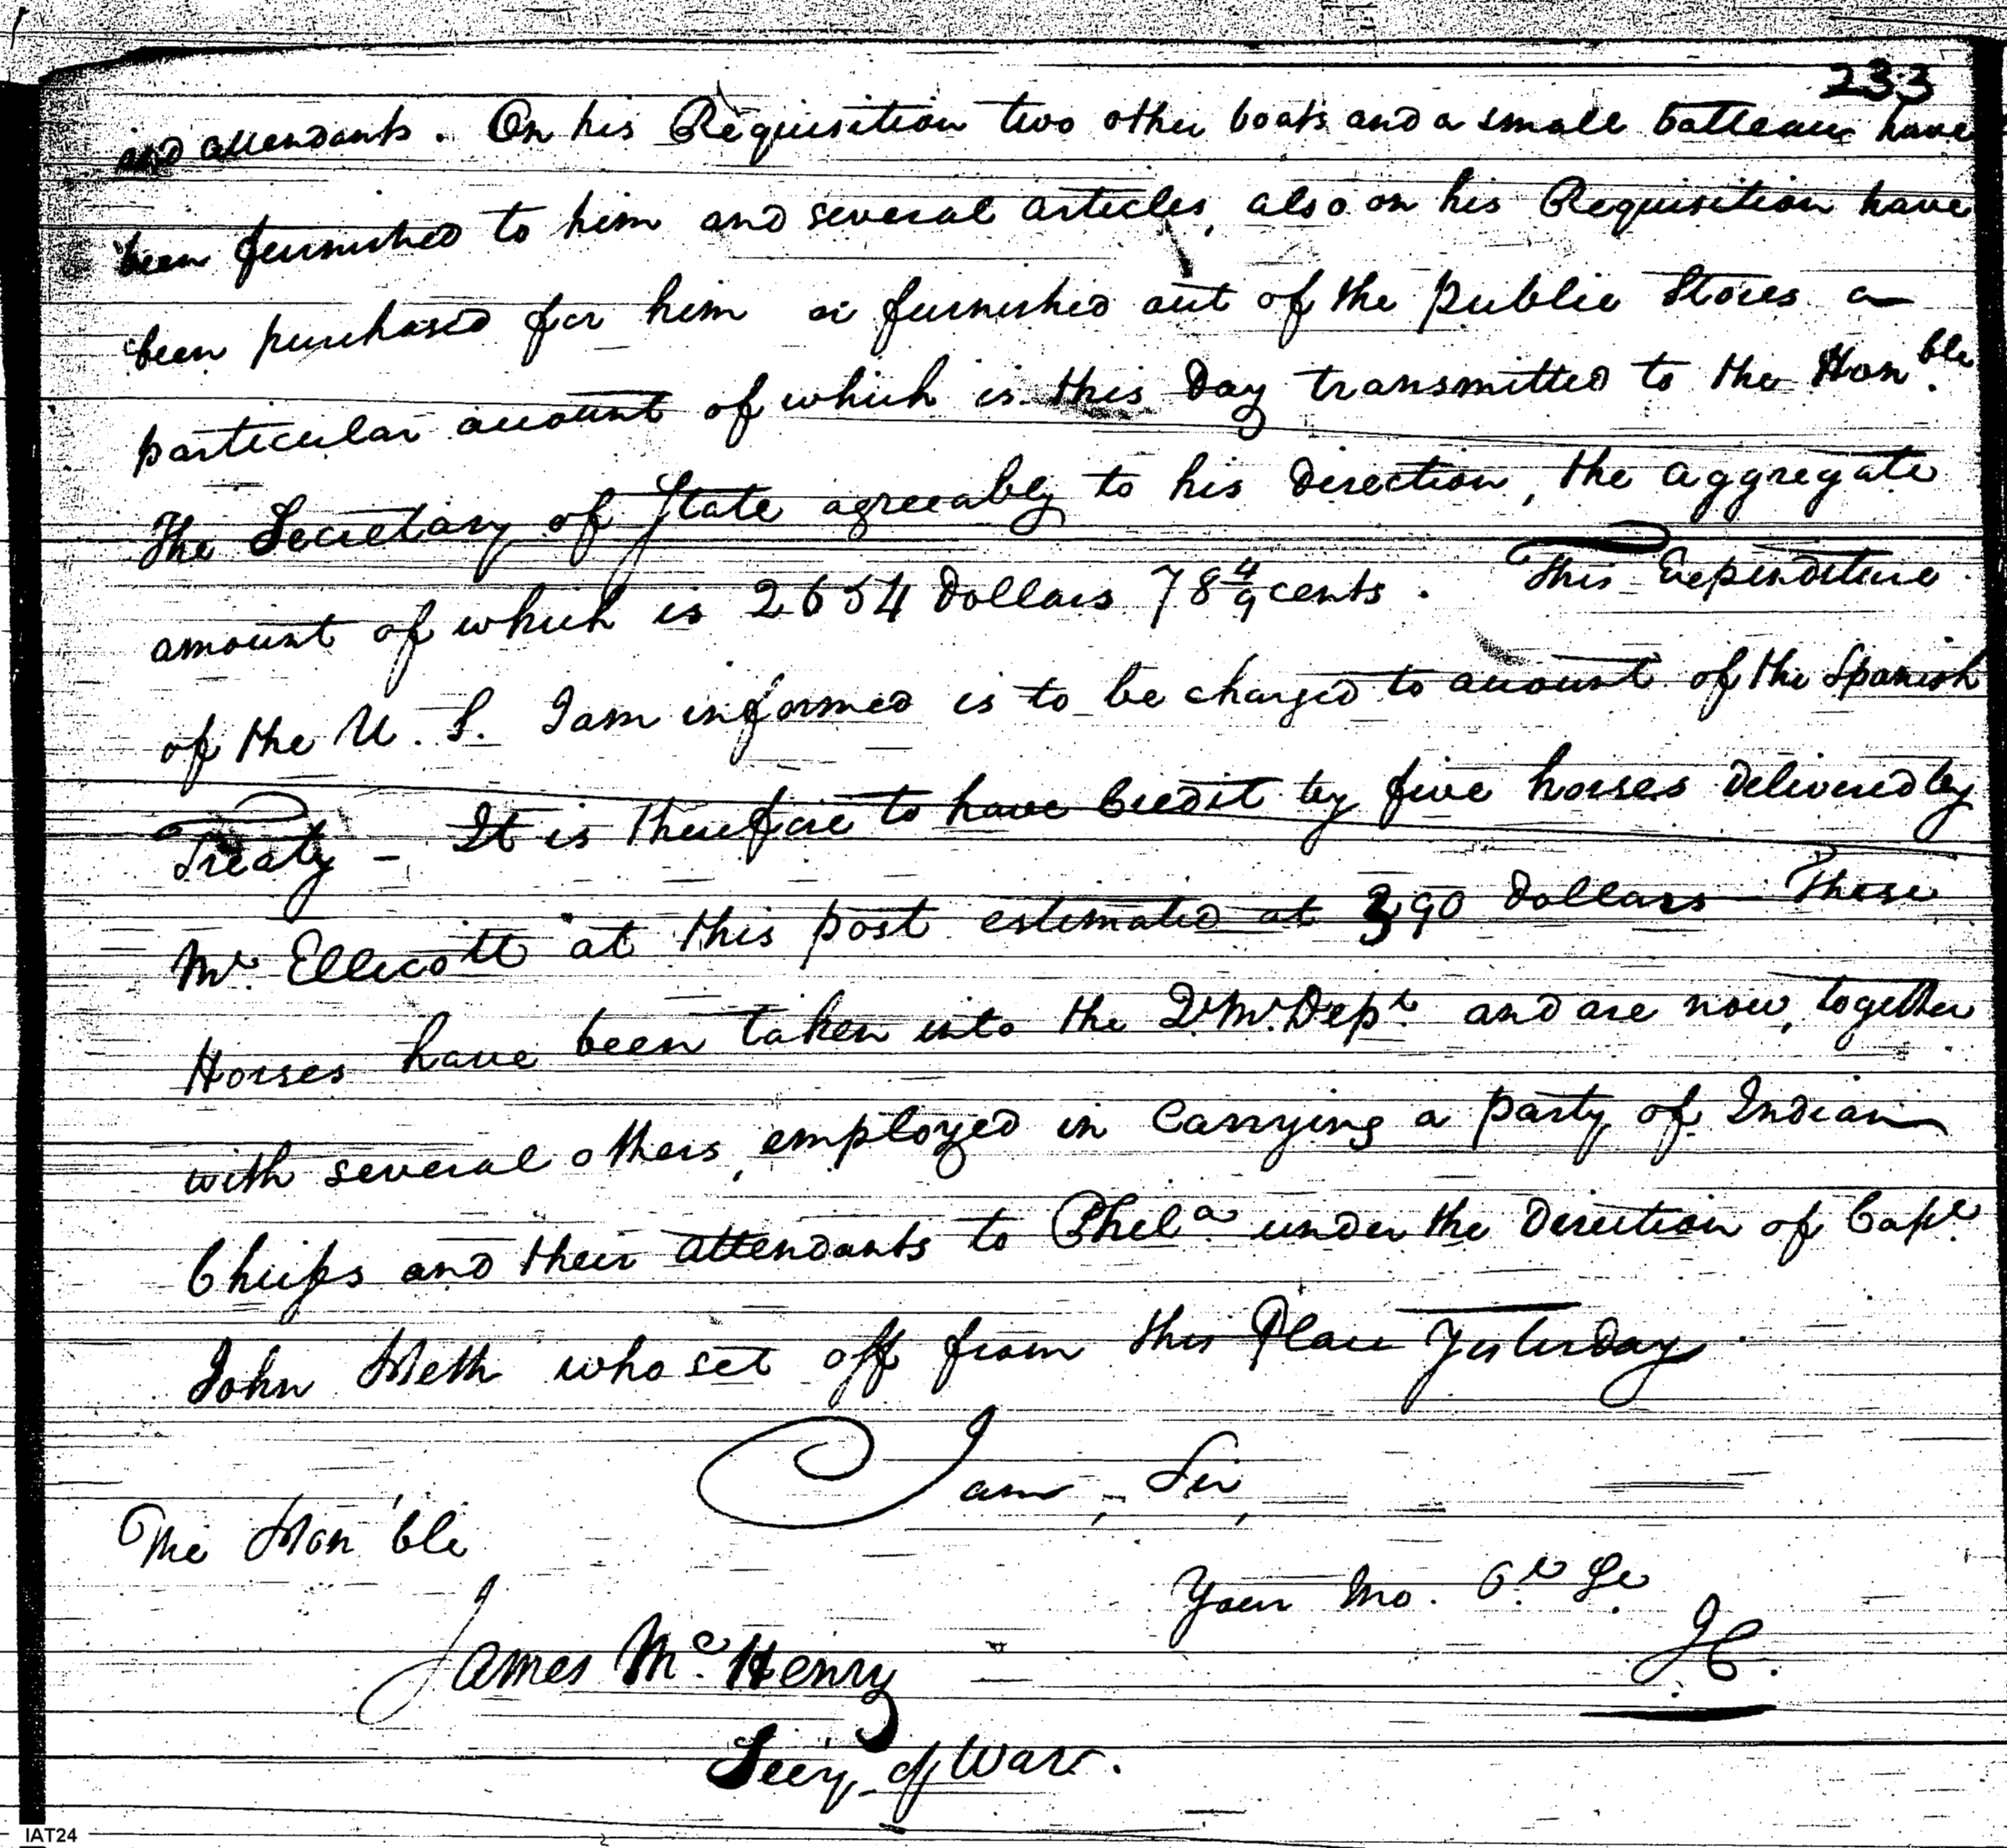 233
and attendants. On his Requisition two other boats and a small batteau have
been furnished to him and several articles, also on his Requisition have
been purchased for him or furnished out of the public Stores a
particular account of which is this Day transmitted to the Hon.ble
The Secretary of State agreeably to his Direction, the aggregate
amount of which is 2654 Dollars 78 4/9 cents. This Expenditure
of the U. S. I am informed is to be charged to account of the Spanish
Treaty - It is therefore to have Credit by five horses delivered by
Mr. Ellicott at this post estimated at 390 Dollars - These
Horses have been taken into the Qr. Mr. Dept. and are now, together
with several others, employed in Carrying a party of Indian
Chiefs and their attendants to Phila. under the Direction of Capt.
John Heth who set off from this Place Yesterday.
I am, Sir,
The Hon'ble
Your Mo. Ob. Se.
James McHenry
JC.
Sec'y of War.
IAT24